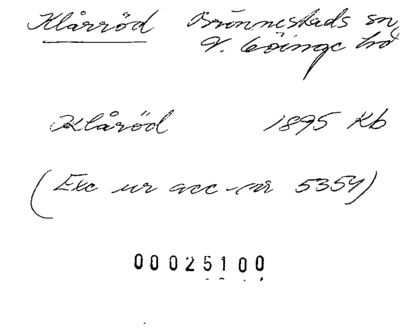 Klårröd Brönnestads sn,
V. Göinge hd
Klåröd 1895 Kb
(Exc ur acc. nr 5354)
00025100